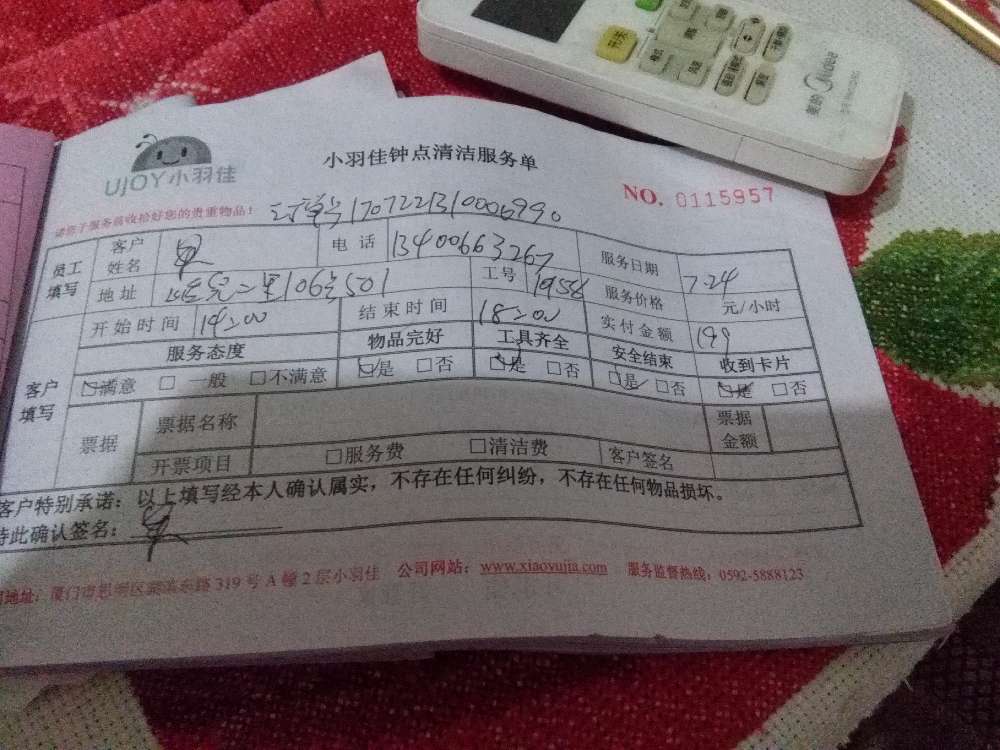 UJOY小羽佳
小羽佳钟点清洁服务单
NO. 0115957
请您于服务前收拾好您的贵重物品！
订单号
员工填写
客户姓名
电话 13400663267
服务日期 7.24
地址 二里106号501
工号 1958
服务价格 元/小时
开始时间 14:00
结束时间 18:00
实付金额 199
客户填写
服务态度 物品完好 工具齐全 安全结束 收到卡片
满意 □ 一般 □不满意 是 □否 是 □否 是 □否 是 □否
票据 票据名称 票据金额
开票项目 □服务费 □清洁费 客户签名
客户特别承诺：以上填写经本人确认属实，不存在任何纠纷，不存在任何物品损坏。
特此确认签名：
地址：厦门市思明区 东路319号A幢2层小羽佳 公司网站：www.xiaoyujia.com 服务监督热线：0592-5888123
开/关
Midea
美的